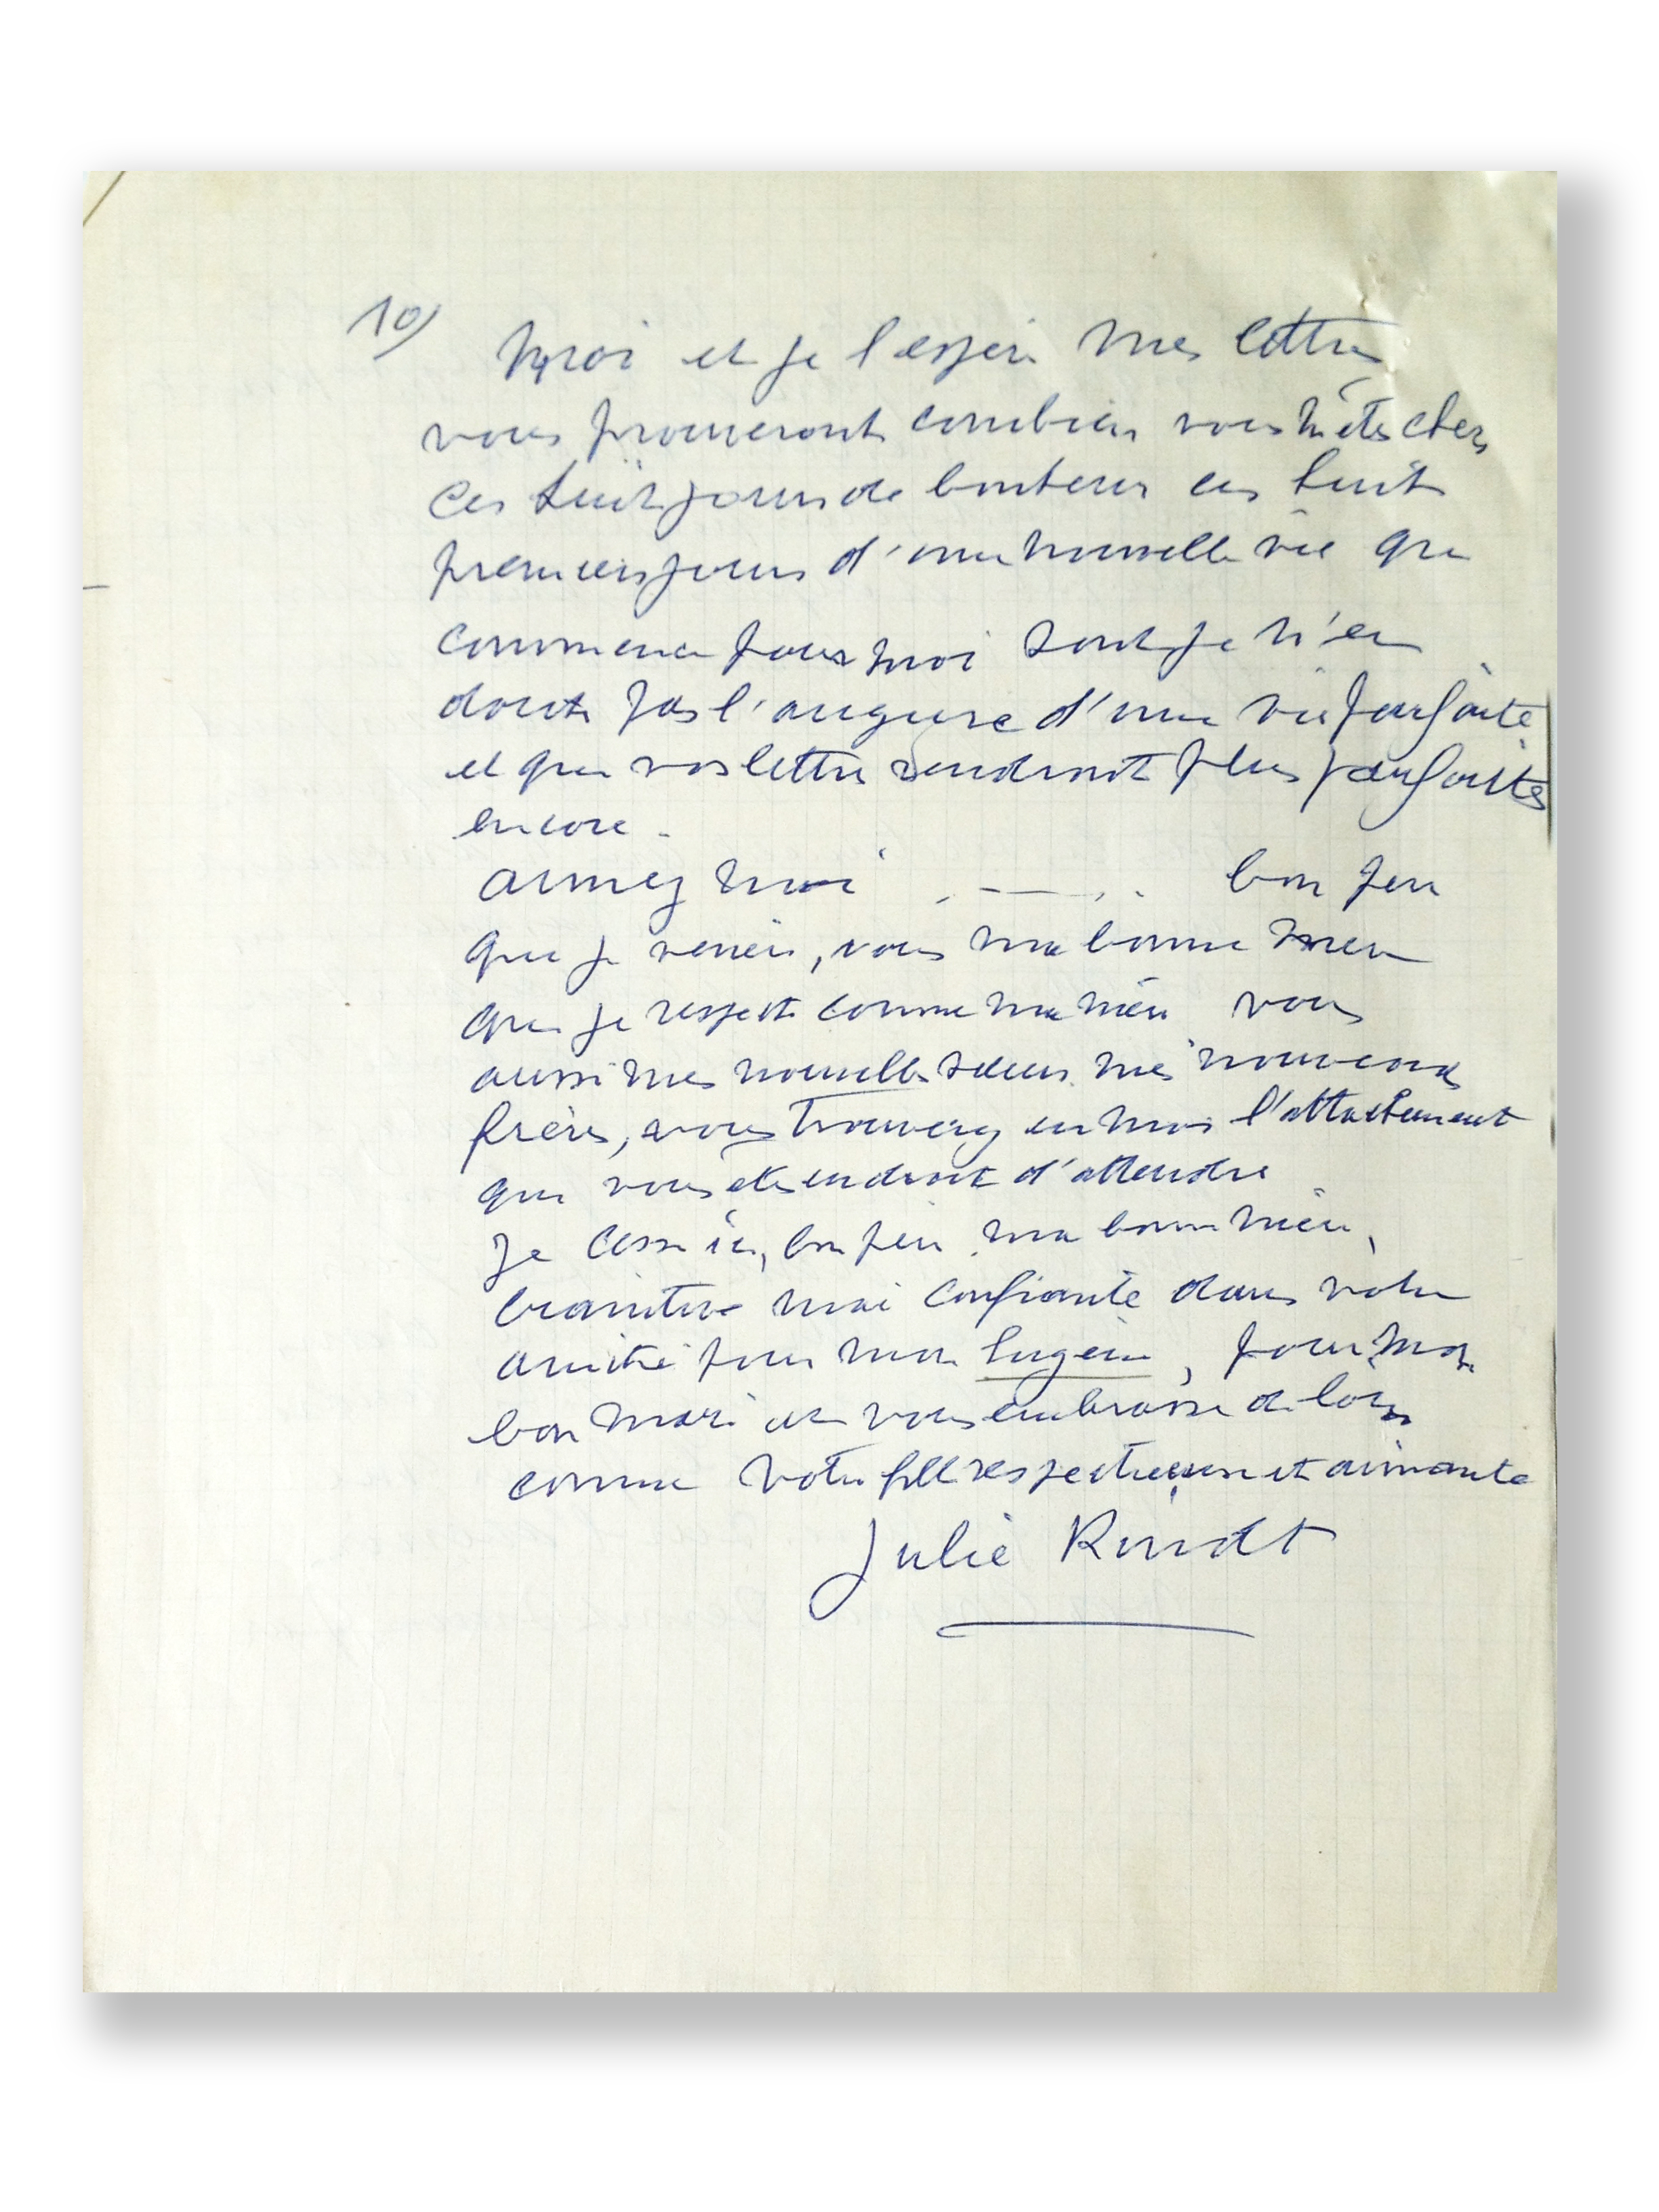 10)
moi et je l'espère mes lettres
vous prouveront combien vous m'êtes chers
ces huit jours de bonheur ces huit
premiers jours d'une nouvelle vie qui
commence pour moi sont je n'en
doute pas l'augure d'une vie parfaite
et que vos lettres rendront plus parfaites
encore -
aimez moi . - — . . bon père
que je , vous ma bonne mère
que je respecte comme ma mère vous
aussi mes nouvelles sœurs mes nouveaux
frères, vous trouverez en moi l'attachement
que vous êtes en droit d'attendre
Je cesse ici, bon père ma bonne mère,
moi confiante dans votre
amitié pour mon Eugène, pour mon
bon mari et vous embrasse de loin
comme votre fille respectueuse et aimante
Julie